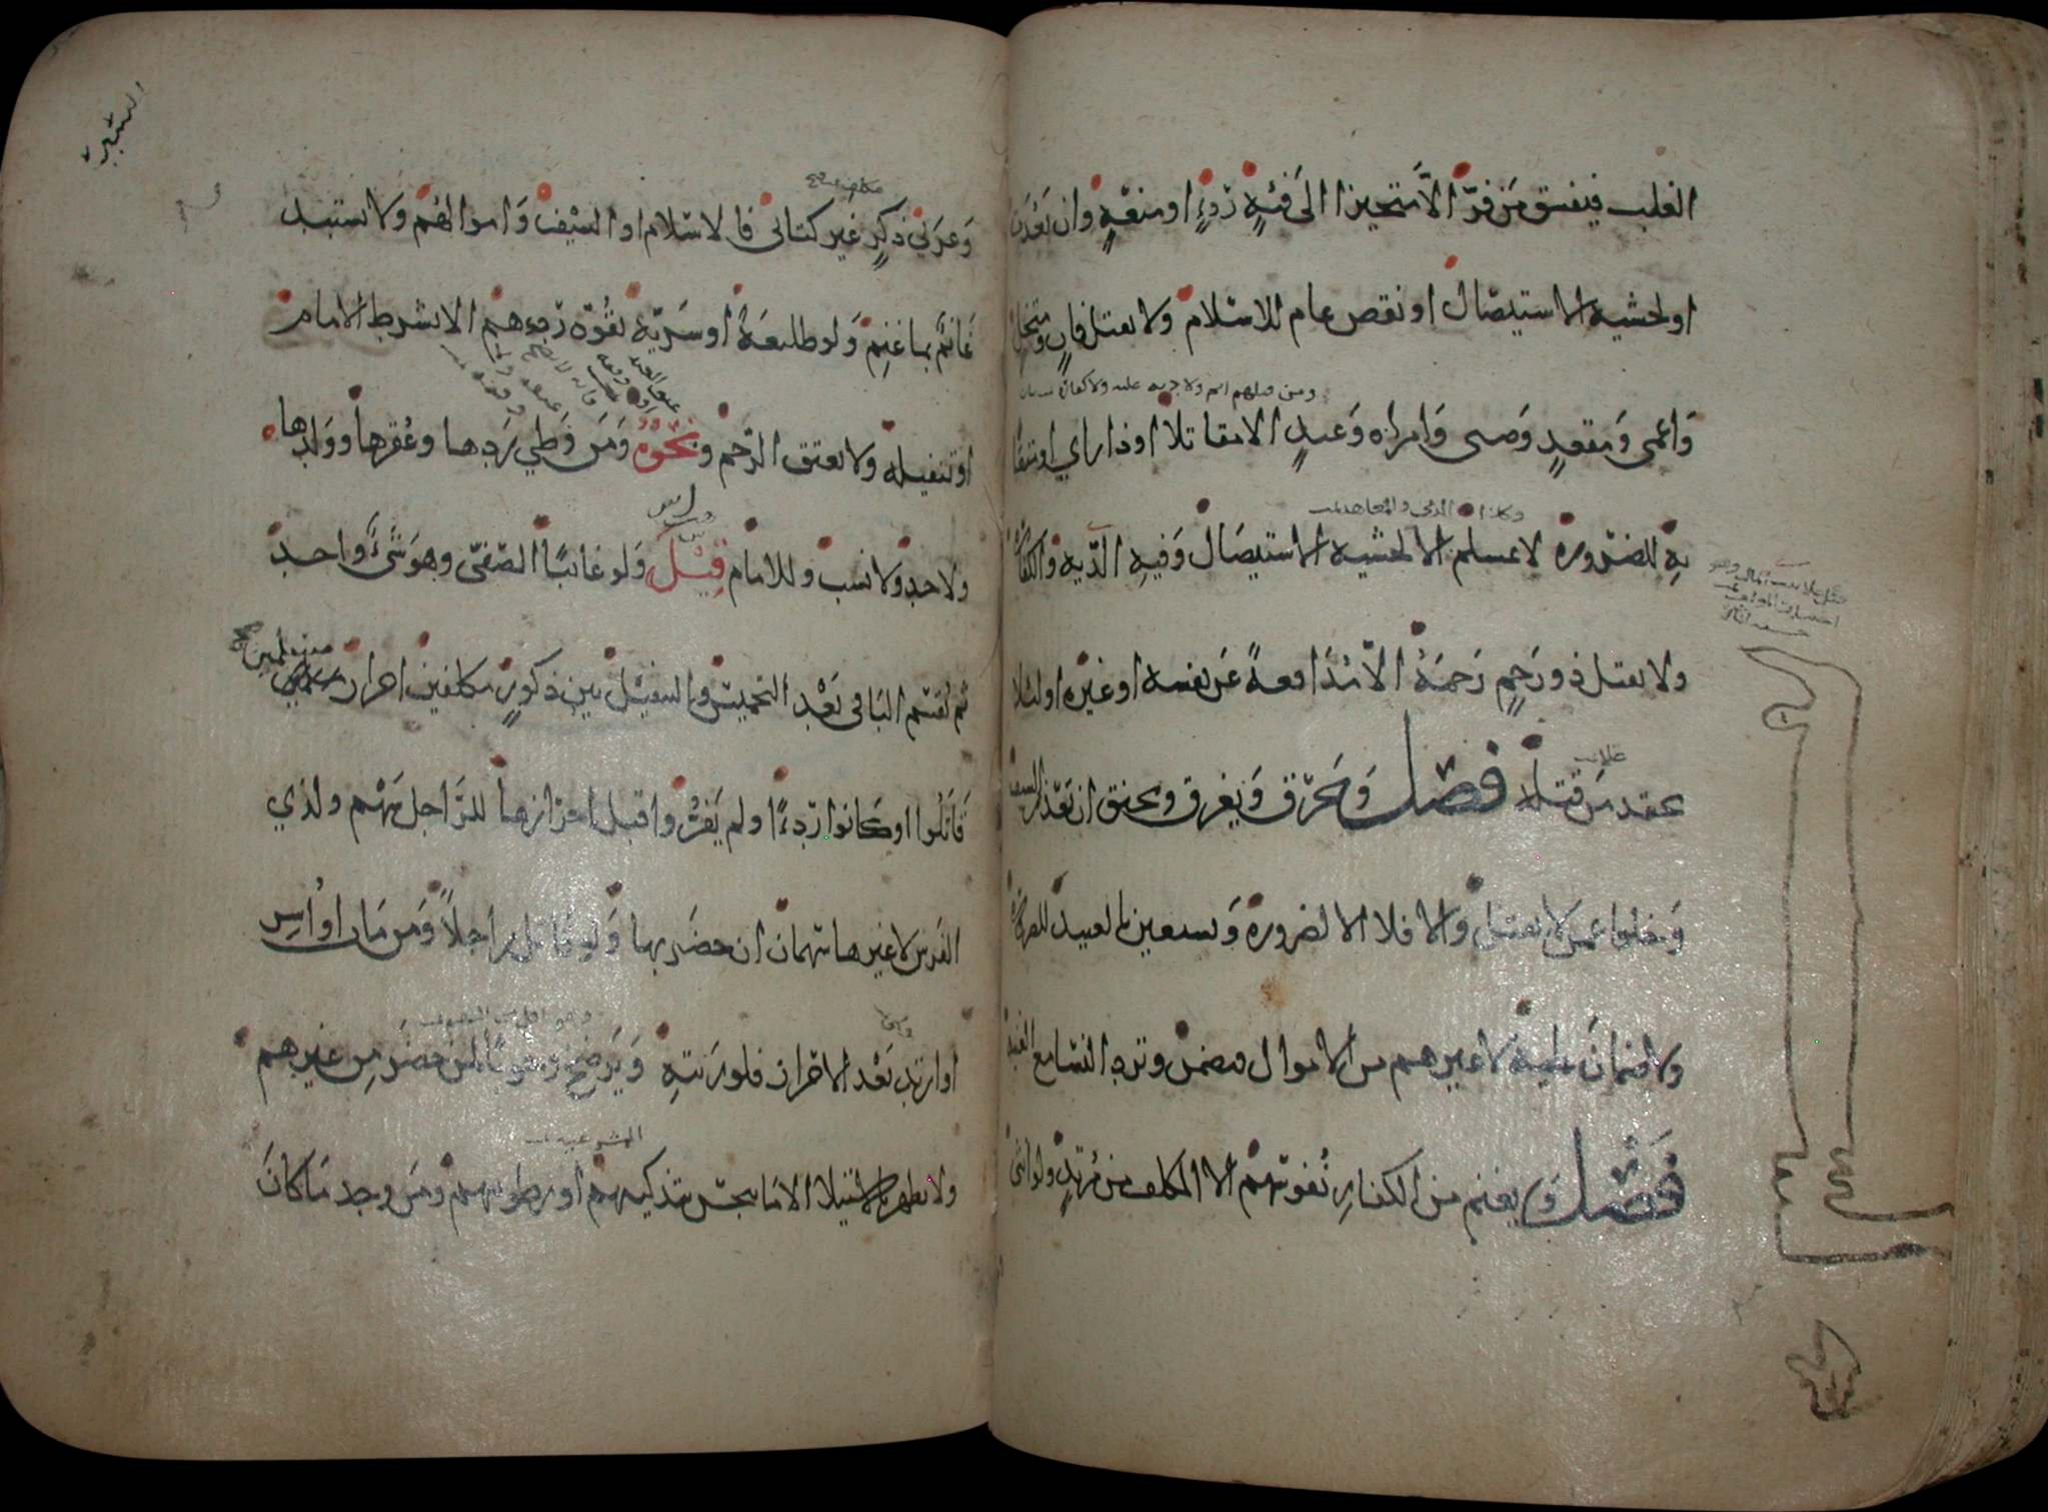 الغلب فيفسق من فرّ الا متحيزا الى فئةٍ ردءٍ او منعةٍ وان بعدت
او لخشية الاستيصال او نقص عام للاسلام ولا يقتل فانٍ ومتخلٍ
ومن قتلهم اثم ولا دية عليه ولا كفارة
واعمى ومقعدٍ وصبي وامراة وعبدٍ الا مقاتلا او ذا راي او متقا
وكذا الذمي والمعاهد
به للضرورة لا بمسلم الا لخشية الاستيصال وفيه الدّية والكفارة
ولا يقتل ذو رحمٍ رحمهُ الا مُدافعةً عن نفسه او غيره او لئلا
يحقد من قتله فصل ويحرّق ويغرق ويخنق ان تعذر السيف
وخلوا عمن لا يقتل والا فلا الا لضرورة ويستعين بالعبيد للضرورة
ولا ضمان عليه لا غيرهم من الاموال فيضمن وترد النسا مع الفئة
فصل ويغنم من الكفار نفوسهم الا المكلف من مُرتدٍ ولو انثى
السير
وعربي ذكرٍ غير كتابي فالاسلام او السيف واموالهم ولا يستبد
غانم بما غنم ولو طليعةً او سريّة بقوّة ردءهم الا بشرط الامام
او تنفيله ولا يعتق الرّحم ونحوُهُ ومن وطي ردها وعُقرها وولدها
ولا حد ولا نسب وللامام قيل ولو غائبًا الصّفيّ وهو شيءٌ واحد
ثم يقسّم الباقي بعْد التخميس والتنفيل بين ذكورٍ مكلفين احرار مسلمين
قاتلوا او كانوا ردءًا ولم يفرُّوا قبل احرازها للرّاجل سهْم ولذي
الفرس لا غيرها سهمان ان حضر بها ولو قاتل راجلاً ومن مات او اُسِر
او ارتد بعْد الاحراز فلورثتهِ ويرضخ وجوبًا لمن حضر من غيرهم
ولا يطهر بالاستيلا الا ما ينجس بتذكيتهم او رطوبتهم ومن وجد ما كان